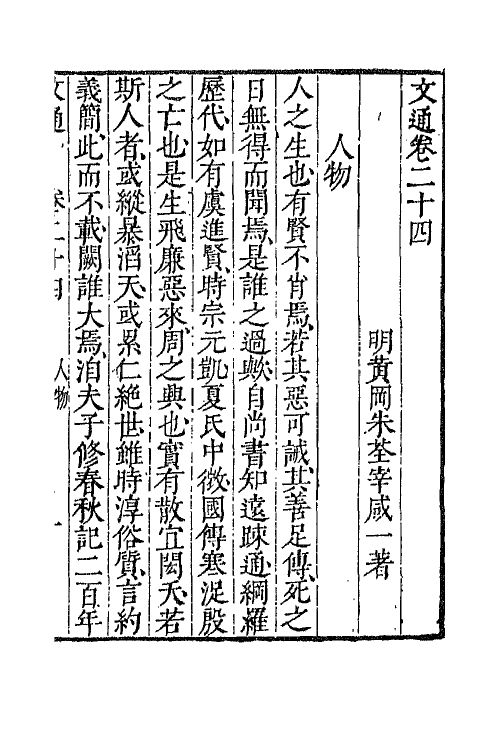 文通卷二十四
明黄岡朱荃宰咸一著
人物
人之生也有賢不肖焉若其惡可誡其善足傳死之
日無得而聞焉是誰之過歟自尚書知遠踈通綱羅
歷代如有虞進賢時宗元凱夏氏中微國傳寒浞殷
之亡也是生飛廉惡來周之興也實有散宜閎夭若
斯人者或縱暴滔天或累仁絶世雖時淳俗質言約
義簡此而不載闕誰大焉洎夫子修春秋記二百年
文通 卷二十四 人物 一